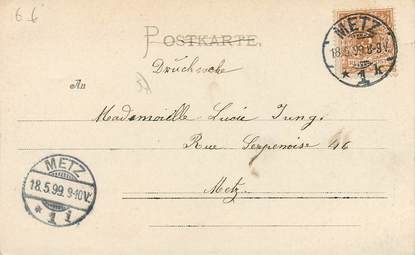 6 6
POSTKARTE.
Drucksache
An
Mademoiselle Lucie Jung.
Rue Serpenoise 46
Metz.
METZ
18.5.99. 8-9V.
* 1 k
METZ
18.5.99. 9-10V.
* 1 i